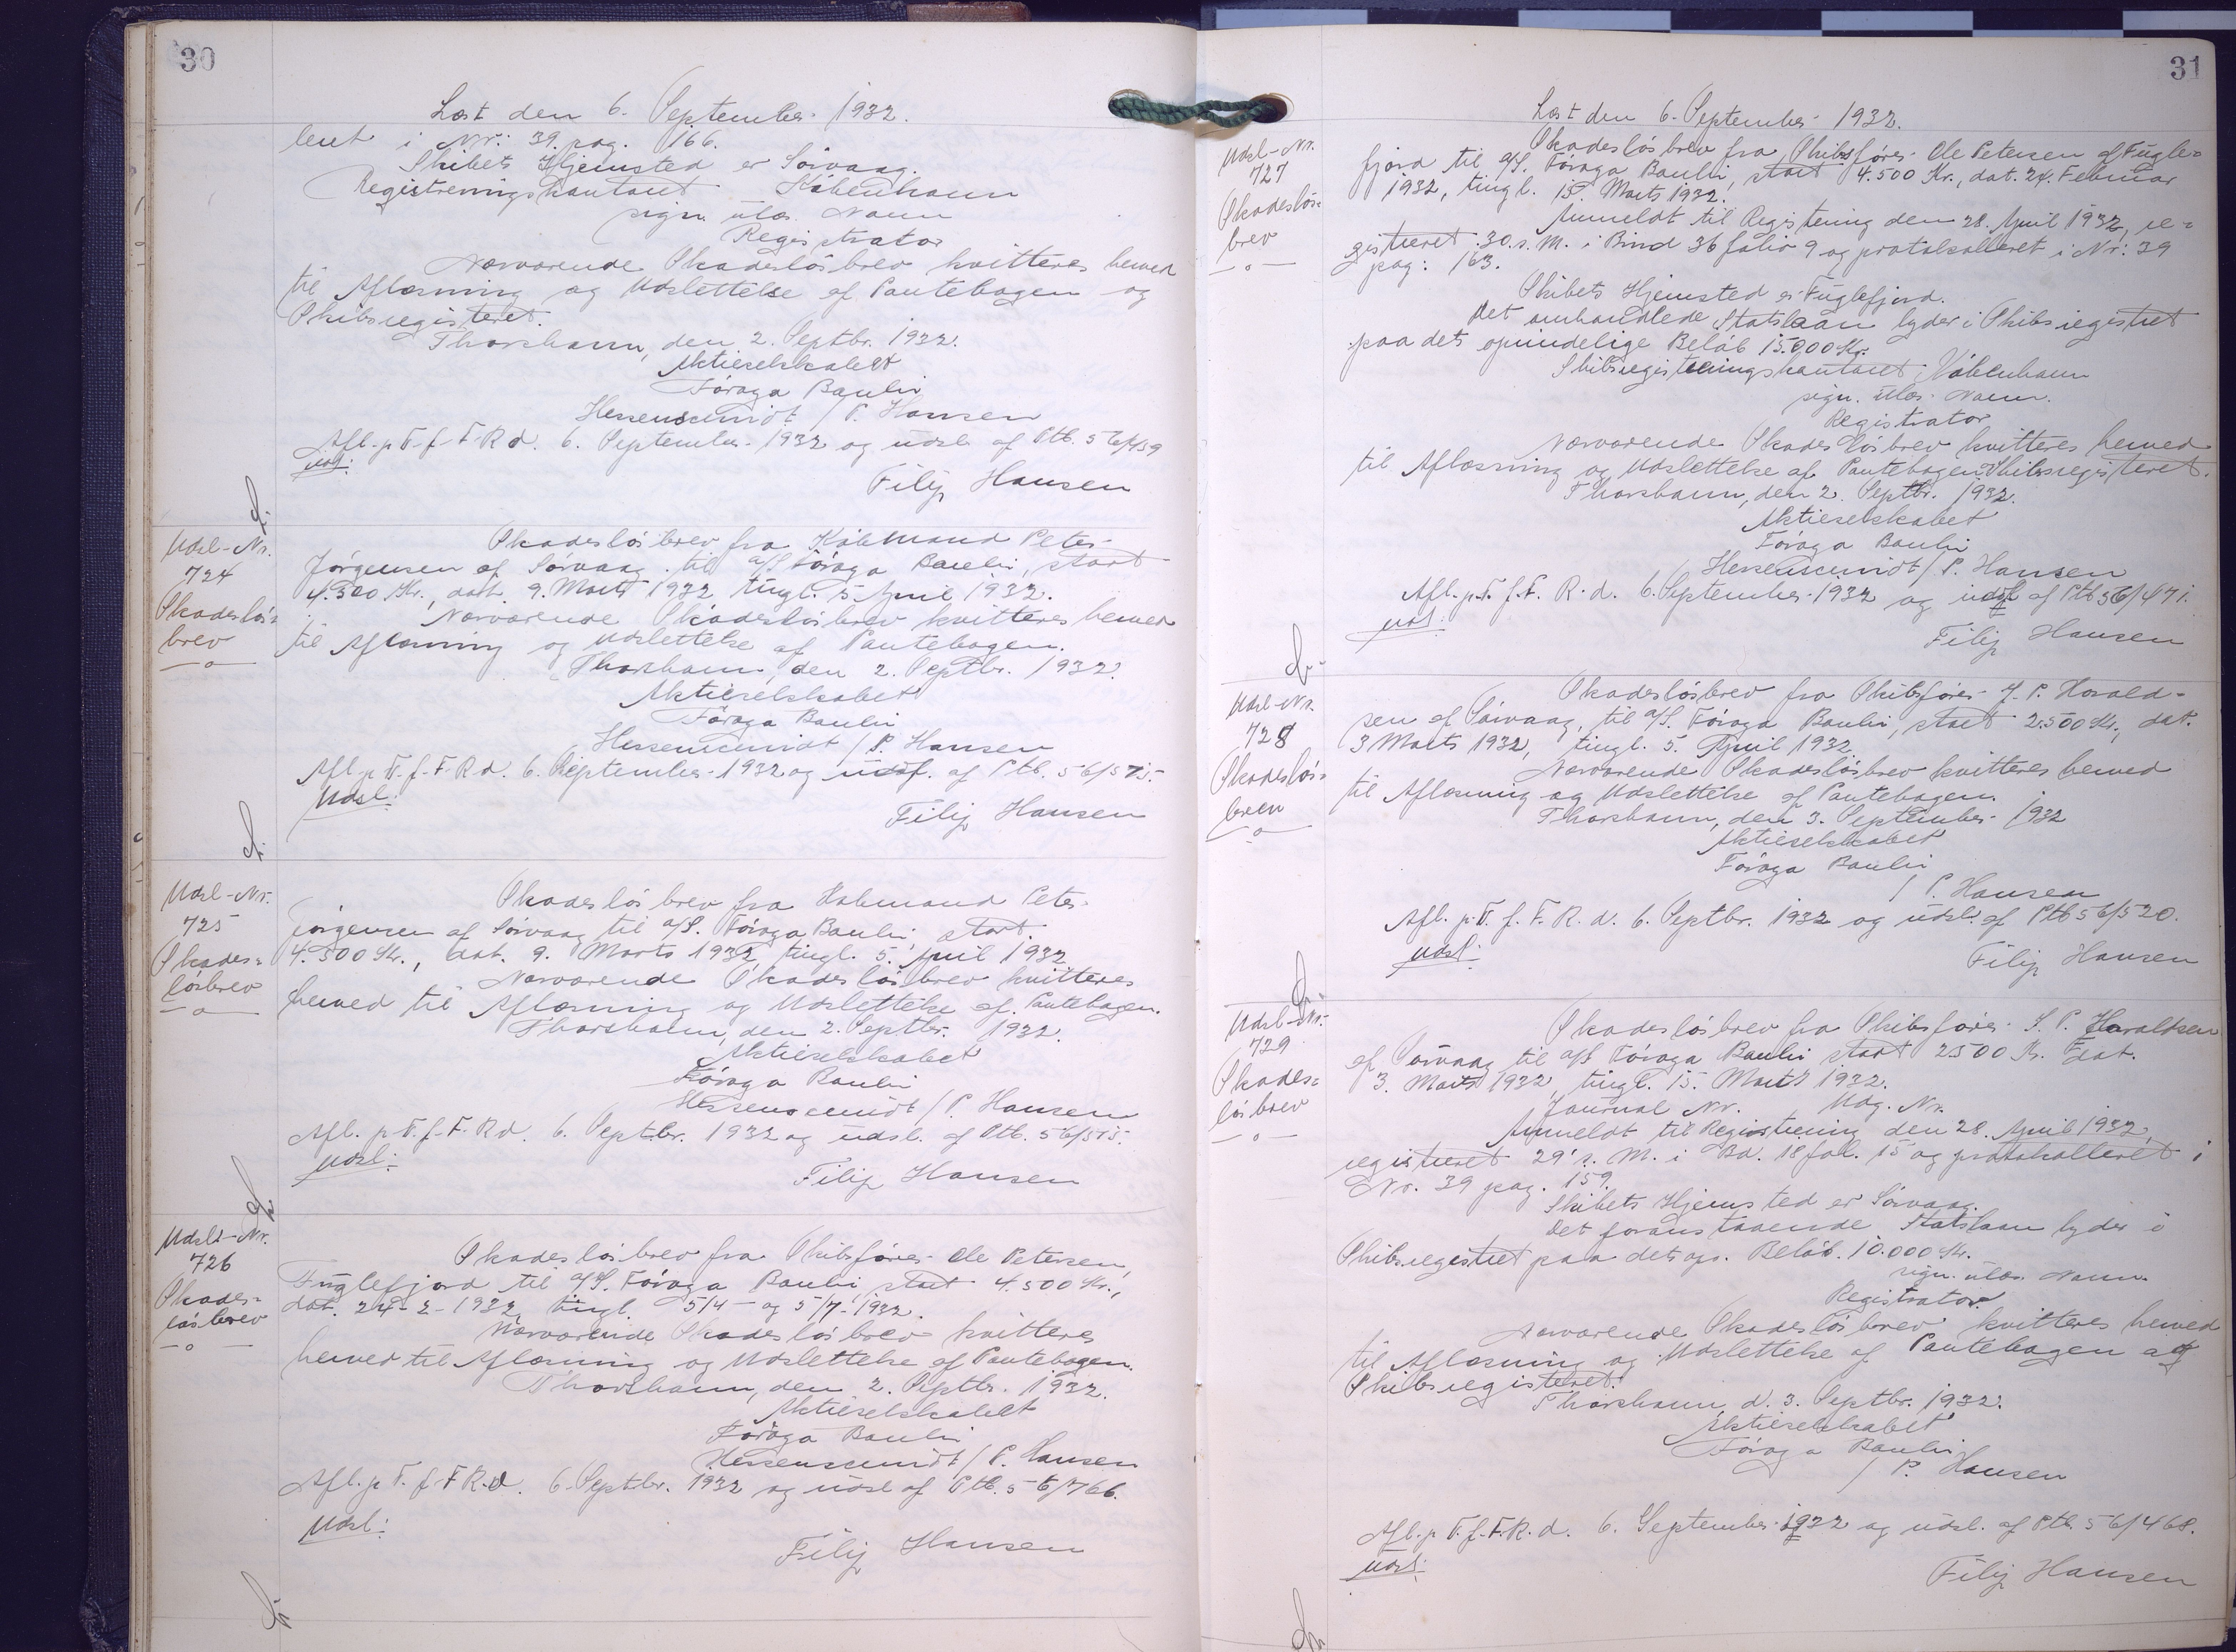 30
Læst den 6. September 1932.
leret i Nr: 39 pag. 166.
Skibets Hjemsted er Sörvaag.
Registreringskontoret København
sign. ulæs. Navn
Registrator
Nærværende Skadeslösbrev kvitteres herved
til Aflæsning og Udslettelse af Pantebogen og
Skibsregisteret.
Thorshavn, den 2. Septbr. 1932.
Aktieselskabet
Föroya Banki
Hessenscmidt / P. Hansen
Afl. p. T. f. F. R d. 6. September 1932 og udsl. af Ptb. 56/459
udsl:
Filip Hansen
Udsl-Nr.
724
Skadeslös=
brev
Skadeslösbrev fra Köbmand Peter
Jörgensen af Sörvaag til a/S Föroya Banki, stort
4.500 Kr., dat. 9. Marts 1932 tingl. 5. April 1932.
Nærværende Skadeslösbrev kvitteres herved
til Aflæsning og Udslettelse af Pantebogen.
Thorshavn, den 2. Septbr. 1932.
Aktieselskabet
Föroya Banki
Hessenscmidt / P. Hansen
Afl. p. T. f. F. R d. 6. September 1932 og udsl. af Ptb. 56/575.
Udsl:
Filip Hansen
Udsl-Nr.
725
Skades=
lösbrev
Skadeslösbrev fra Købmand Peter
Jörgensen af Sörvaag til a/S. Föroya Banki, stort
4.500 Kr., dat. 9. Marts 1932, tingl. 5. April 1932
Nærværende Skadeslösbrev kvitteres
herved til Aflæsning og Udslettelse af Pantebogen.
Thorshavn, den 2. Septbr. 1932.
Aktieselskabet
Föroya Banki
Hessenscmidt / P. Hansen
Afl. p. T. f. F. R d. 6. Septbr. 1932 og udsl. af Ptb. 56/515.
udsl:
Filip Hansen
Udsl-Nr.
726
Skades=
lösbrev
Skadeslösbrev fra Skibsförer Ole Petersen,
Fuglefjord til a/S. Föroya Banki, stort 4.500 Kr.,
dat. 24-2-1932, tingl. 5/4 - og 5/7-1932.
Nærværende Skadeslösbrev kvitteres
herved til Aflæsning og Udslettelse af Pantebogen.
Thorshavn, den 2. Septbr. 1932.
Aktieselskabet
Föroya Banki
Hessenscmidt / P. Hansen
Afl. p. T. f. F R. d. 6. Septbr. 1932 og udsl af Ptb. 56/766.
Udsl:
Filip Hansen
31
Læst den 6. September 1932.
Udsl-Nr.
727
Skadeslös=
brev
Skadeslösbrev fra Skibsförer Ole Petersen af Fugle=
fjord til a/S. Föroya Banki, stort 4.500 Kr., dat. 24. Februar
1932, tingl. 15. Marts 1932.
Anmeldt til Registering den 28. April 1932, re=
gistreret 30. s. M. i Bind 36 folio 9 og protokolleret i Nr: 39
pag: 163.
Skibets Hjemsted er Fuglefjord.
Det omhandlede Statslaan lyder i Skibsregistret
paa dets oprindelige Beløb 15.000 Kr.
Skibsregisteringskontoret, København
sign. ulæs. Navn.
Registrator
Nærværende Skadeslösbrev kvitteres herved
til Aflæsning og Udslettelse af Pantebogen Skibsregisteret.
Thorshavn, den 2. Septbr. 1932.
Aktieselskabet
Föroya Banki
Hessenscmidt / P. Hansen
Afl. p. T. f. F. R. d. 6. September 1932 og udsl af Ptb 56/471.
udsl:
Filip Hansen
Udsl-Nr.
728
Skadeslös=
brev
Skadeslösbrev fra Skibsförer J. P. Harald=
sen af Sörvaag, til a/S. Föroya Banki, stort 2.500 Kr., dat.
3 Marts 1932, tingl. 5. April 1932
Nærværende Skadeslösbrev kvitteres herved
til Aflæsning og Udslettelse af Pantebogen.
Thorshavn, den 3. September 1932
Aktieselskabet
Föroya Banki
/ P. Hansen
Afl. p. T. f. F. R. d. 6. Septbr. 1932 og udsl. af Ptb 56/520.
udsl:
Filip Hansen
Udsl-Nr.
729
Skades=
lösbrev
Skadeslösbrev fra Skibsförer J. P. Haraldsen
af Sörvaag til a/S Föroya Banki stort 2500 Kr. dat.
3. Marts 1932, tingl. 15. Marts 1932.
Journal Nr. Udg. Nr.
Anmeldt til Registrering den 28. April 1932,
registreret 29' s. M. i Bd. 18 fol. 15 og protokolleret i
Nr. 39 pag. 159.
Skibets Hjemsted er Sörvaag.
Det foranstaaende Statslaan lyder i
Skibsregistret paa dets opr. Beløb. 10.000 Kr.
sign. ulæs. Navn.
Registrator
Nærværende Skadeslösbrev kvitteres herved
til Aflæsning og Udslettelse af Pantebogen og
Skibsregisteret.
Thorshavn d. 3. Septbr. 1932.
Aktieselskabet
Föroya Banki
/ P. Hansen
Afl. p. T. f. F. R. d. 6. September 1932 og udsl. af Ptb. 56/468.
udsl:
Filip Hansen